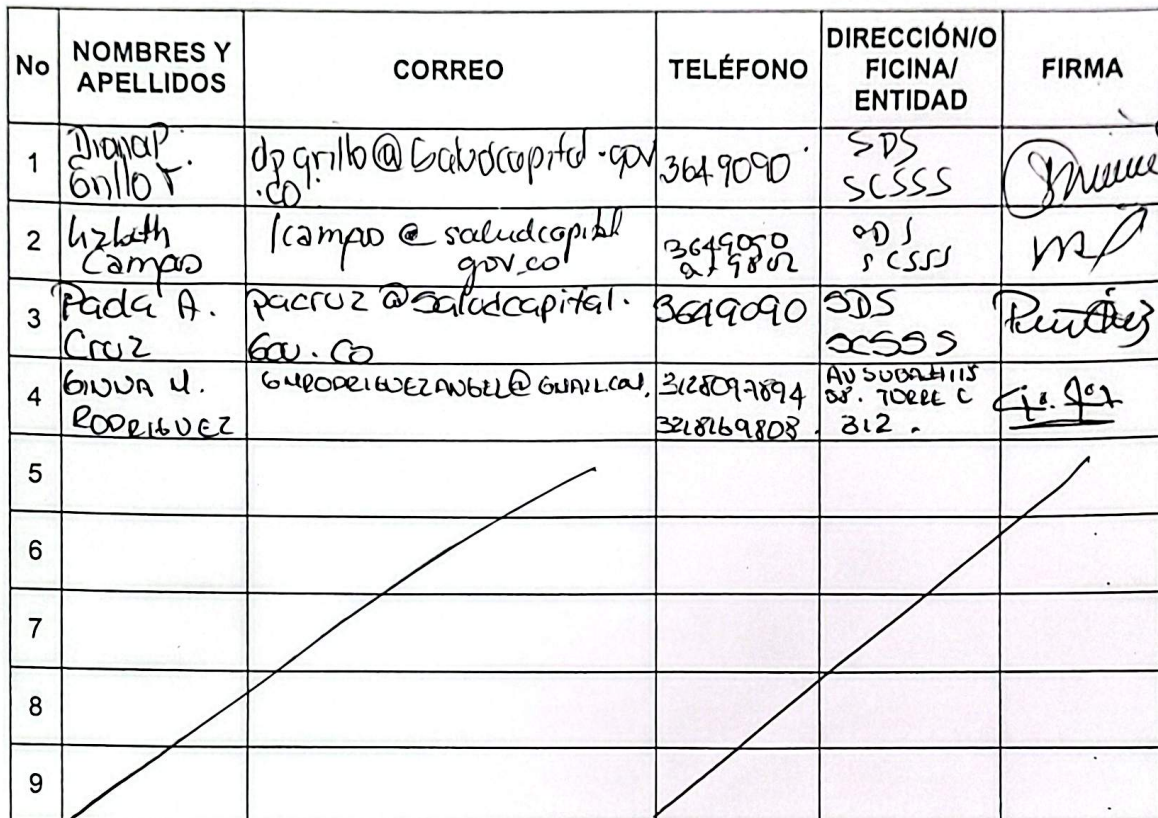 No NOMBRES Y APELLIDOS CORREO TELÉFONO DIRECCIÓN/O FICINA/ ENTIDAD FIRMA
1 Diana P. Grillo T. dpgrillo@saludcapital.gov.co 3649090 SDS SCSSS
2 Lizbeth Campos lcampo@saludcapital gov.co 3649090 SDS SCSSS
3 Paola A. Cruz pacruz@saludcapital.Gov.Co 3649090 SDS SCSSS
4 GINNA M. RODRIGUEZ GMRODRIGUEZANGEL@GMAIL.COM. 3128097894 3218269808. AV SUBA #115 TORRE C 312.
5
6
7
8
9